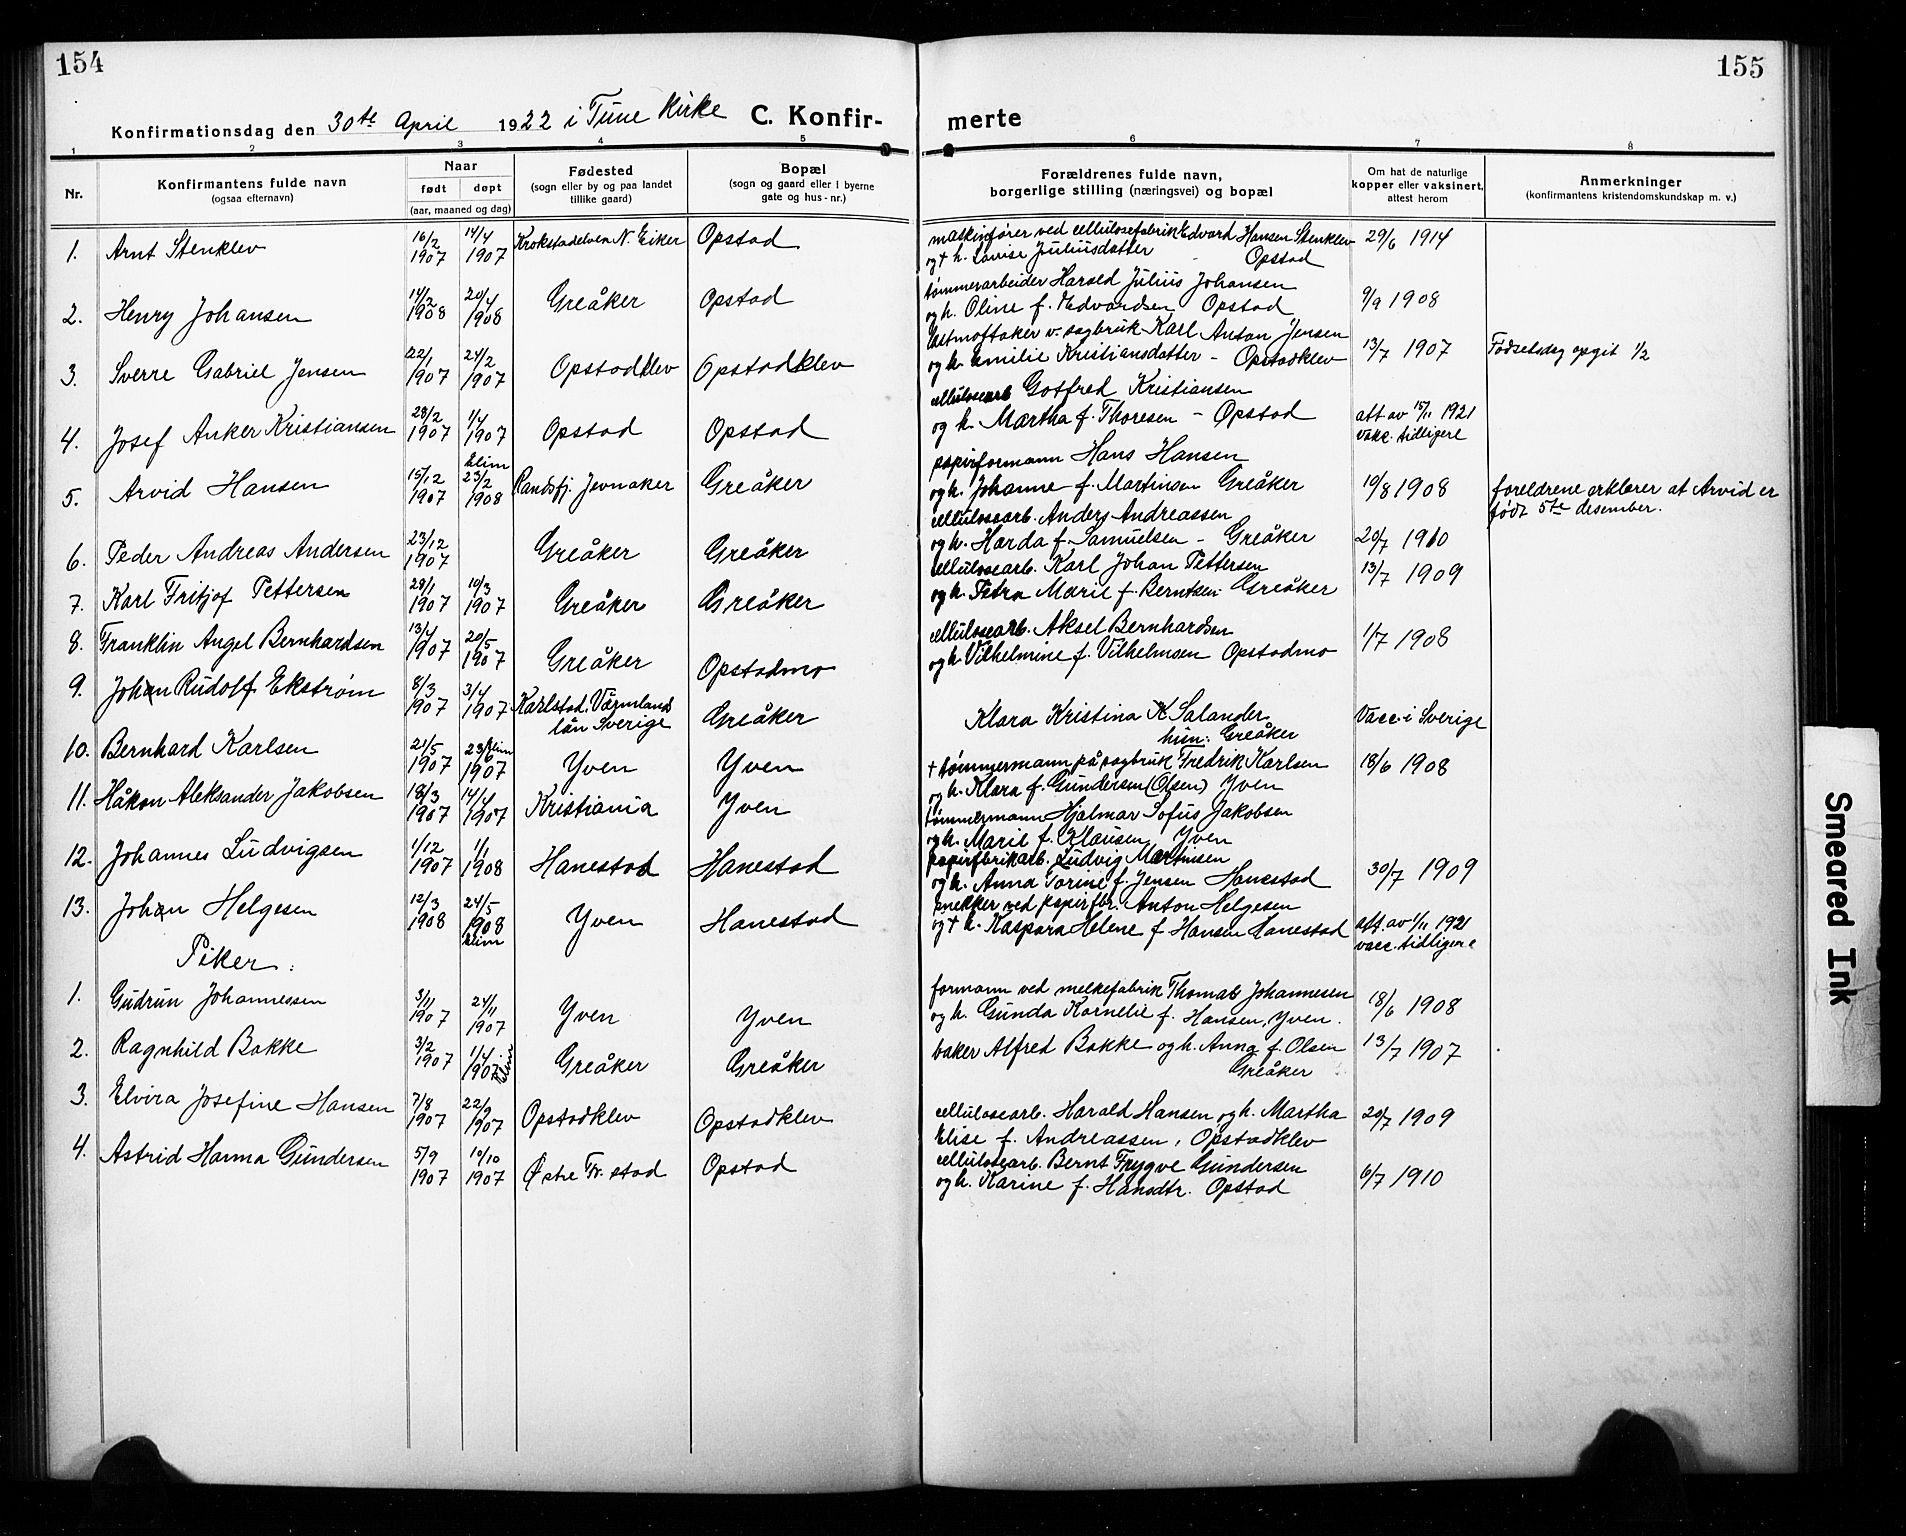 154
155
Konfirmationsdag den 30te April 1922 i Tune Kirke C. Konfir-
merte
1 2 3 4 5 6 7 8
Nr.
Konfirmantens fulde navn
(ogsaa efternavn)
Naar
født døpt
(aar, maaned og dag)
Fødested
(sogn eller by og paa landet
tillike gaard)
Bopæl
(sogn og gaard eller i byerne
gate og hus-nr.)
Forældrenes fulde navn,
borgerlige stilling (næringsvei) og bopæl
Om hat de naturlige
kopper eller vaksinert,
attest herom
Anmerkninger
(konfirmantens kristendomskundskap m. v.)
1. Arnt Stenklev 16/2 1907 14/4 1907 Krokstadelven N. Eiker Opstad
maskinfører ved cellulosefabrik Edvard Hansen Stenklev 29/6 1914
og + h. Lovise Juliusdatter - Opstad
2. Henry Johansen 14/2 1908 20/4 1908 Greåker Opstad
tømmerarbeider Harald Julius Johansen
og h. Oline f. Edvardsen Opstad 9/9 1908
3. Sverre Gabriel Jensen 22/1 1907 24/2 1907 Opstadklev Opstadklev
v. sagbruk Karl Anton Jensen
og h. Emilie Kristiansdatter - Opstadklev 13/7 1907 Fødselsdag opgit 1/2
4. Josef Anker Kristiansen 28/2 1907 1/4 1907 Opstad Opstad
cellulosearb Gotfred Kristiansen
og h. Martha f. Thoresen - Opstad att av 15/11 1921
vacc. tidligere
5. Arvid Hansen 15/12 1907 Elim 23/2 1908 Randsfj. Jevnaker Greåker
papirformann Hans Hansen
og h. Johanne f. Martinsen Greåker 19/8 1908 foreldrene erklærer at Arvid er
født 5te desember.
6. Peder Andreas Andersen 23/12 1907 Greåker Greåker
cellulosearb. Anders Andreassen
og h. Harda f. Samuelsen - Greåker 20/7 1910
7. Karl Fritjof Pettersen 28/1 1907 10/3 1907 Greåker Greåker
cellulosearb. Karl Johan Pettersen 13/7 1909
og h. Petra Marie f. Berntsen Greåker
8. Franklin Angel Bernhardsen 13/4 1907 20/5 1907 Greåker Opstadmo
cellulosearb. Aksel Bernhardsen
og h. Vilhelmine f. Vilhelmsen Opstadmo 1/7 1908
9. Johan Rudolf Ekstrøm 8/3 1907 3/4 1907 Karlstad, Värmlands
län Sverige Greåker
Klara Kristina K Salander Vacc. i Sverige
Greåker
10. Bernhard Karlsen 21/5 1907 23/6 1907 Elim Yven Yven
+ tømmermann på sagbruk Fredrik Karlsen 18/6 1908
og h. Klara f. Gundersen (Olsen) Yven
11. Håkon Aleksander Jakobsen 18/3 1907 14/4 1907 Kristiania Yven
tømmermann Hjalmar Sofus Jakobsen
og h. Marie f. Klausen Yven
12. Johannes Ludvigsen 1/12 1907 1/1 1908 Hanestad Hanestad
papirfabrikarb. Ludvig Martinsen
og h. Anna Torine f. Jensen Hanestad 30/7 1909
13. Johan Helgesen 12/3 1908 24/5 1908 Elim Yven Hanestad
snekker ved papirfbr. Anton Helgesen
og + h. Kaspara Helene f Hansen Hanestad att. av 1/11 1921
vacc. tidligere
Piker:
1. Gudrun Johannessen 3/11 1907 24/11 1907 Yven Yven
formann ved melkefabrik Thomas Johannesen 18/6 1908
og h. Gunda Kornelie f. Hansen, Yven.
2. Ragnhild Bakke 3/2 1907 1/4 1907 Elim Greåker Greåker
baker Alfred Bakke og h. Anna f. Olsen 13/7 1907
Greåker
3. Elvira Josefine Hansen 7/8 1907 22/9 1907 Opstadklev Opstadklev
cellulosearb. Harald Hansen og h. Martha 20/7 1909
Elise f. Andreassen, Opstadklev
4. Astrid Hanna Gundersen 5/9 1907 10/10 1907 Østre Fr. stad Opstad
cellulosearb. Bernt Trygve Gundersen
og h. Karine f. Hansdtr. Opstad 6/7 1910
Smeared Ink